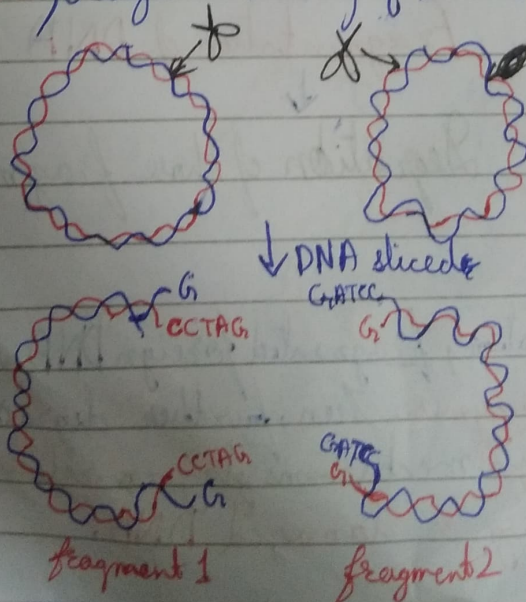 DNA sliced
G
CCTAG
GATCC
G
CCTAG
G
GATCC
G
fragment 1
fragment 2